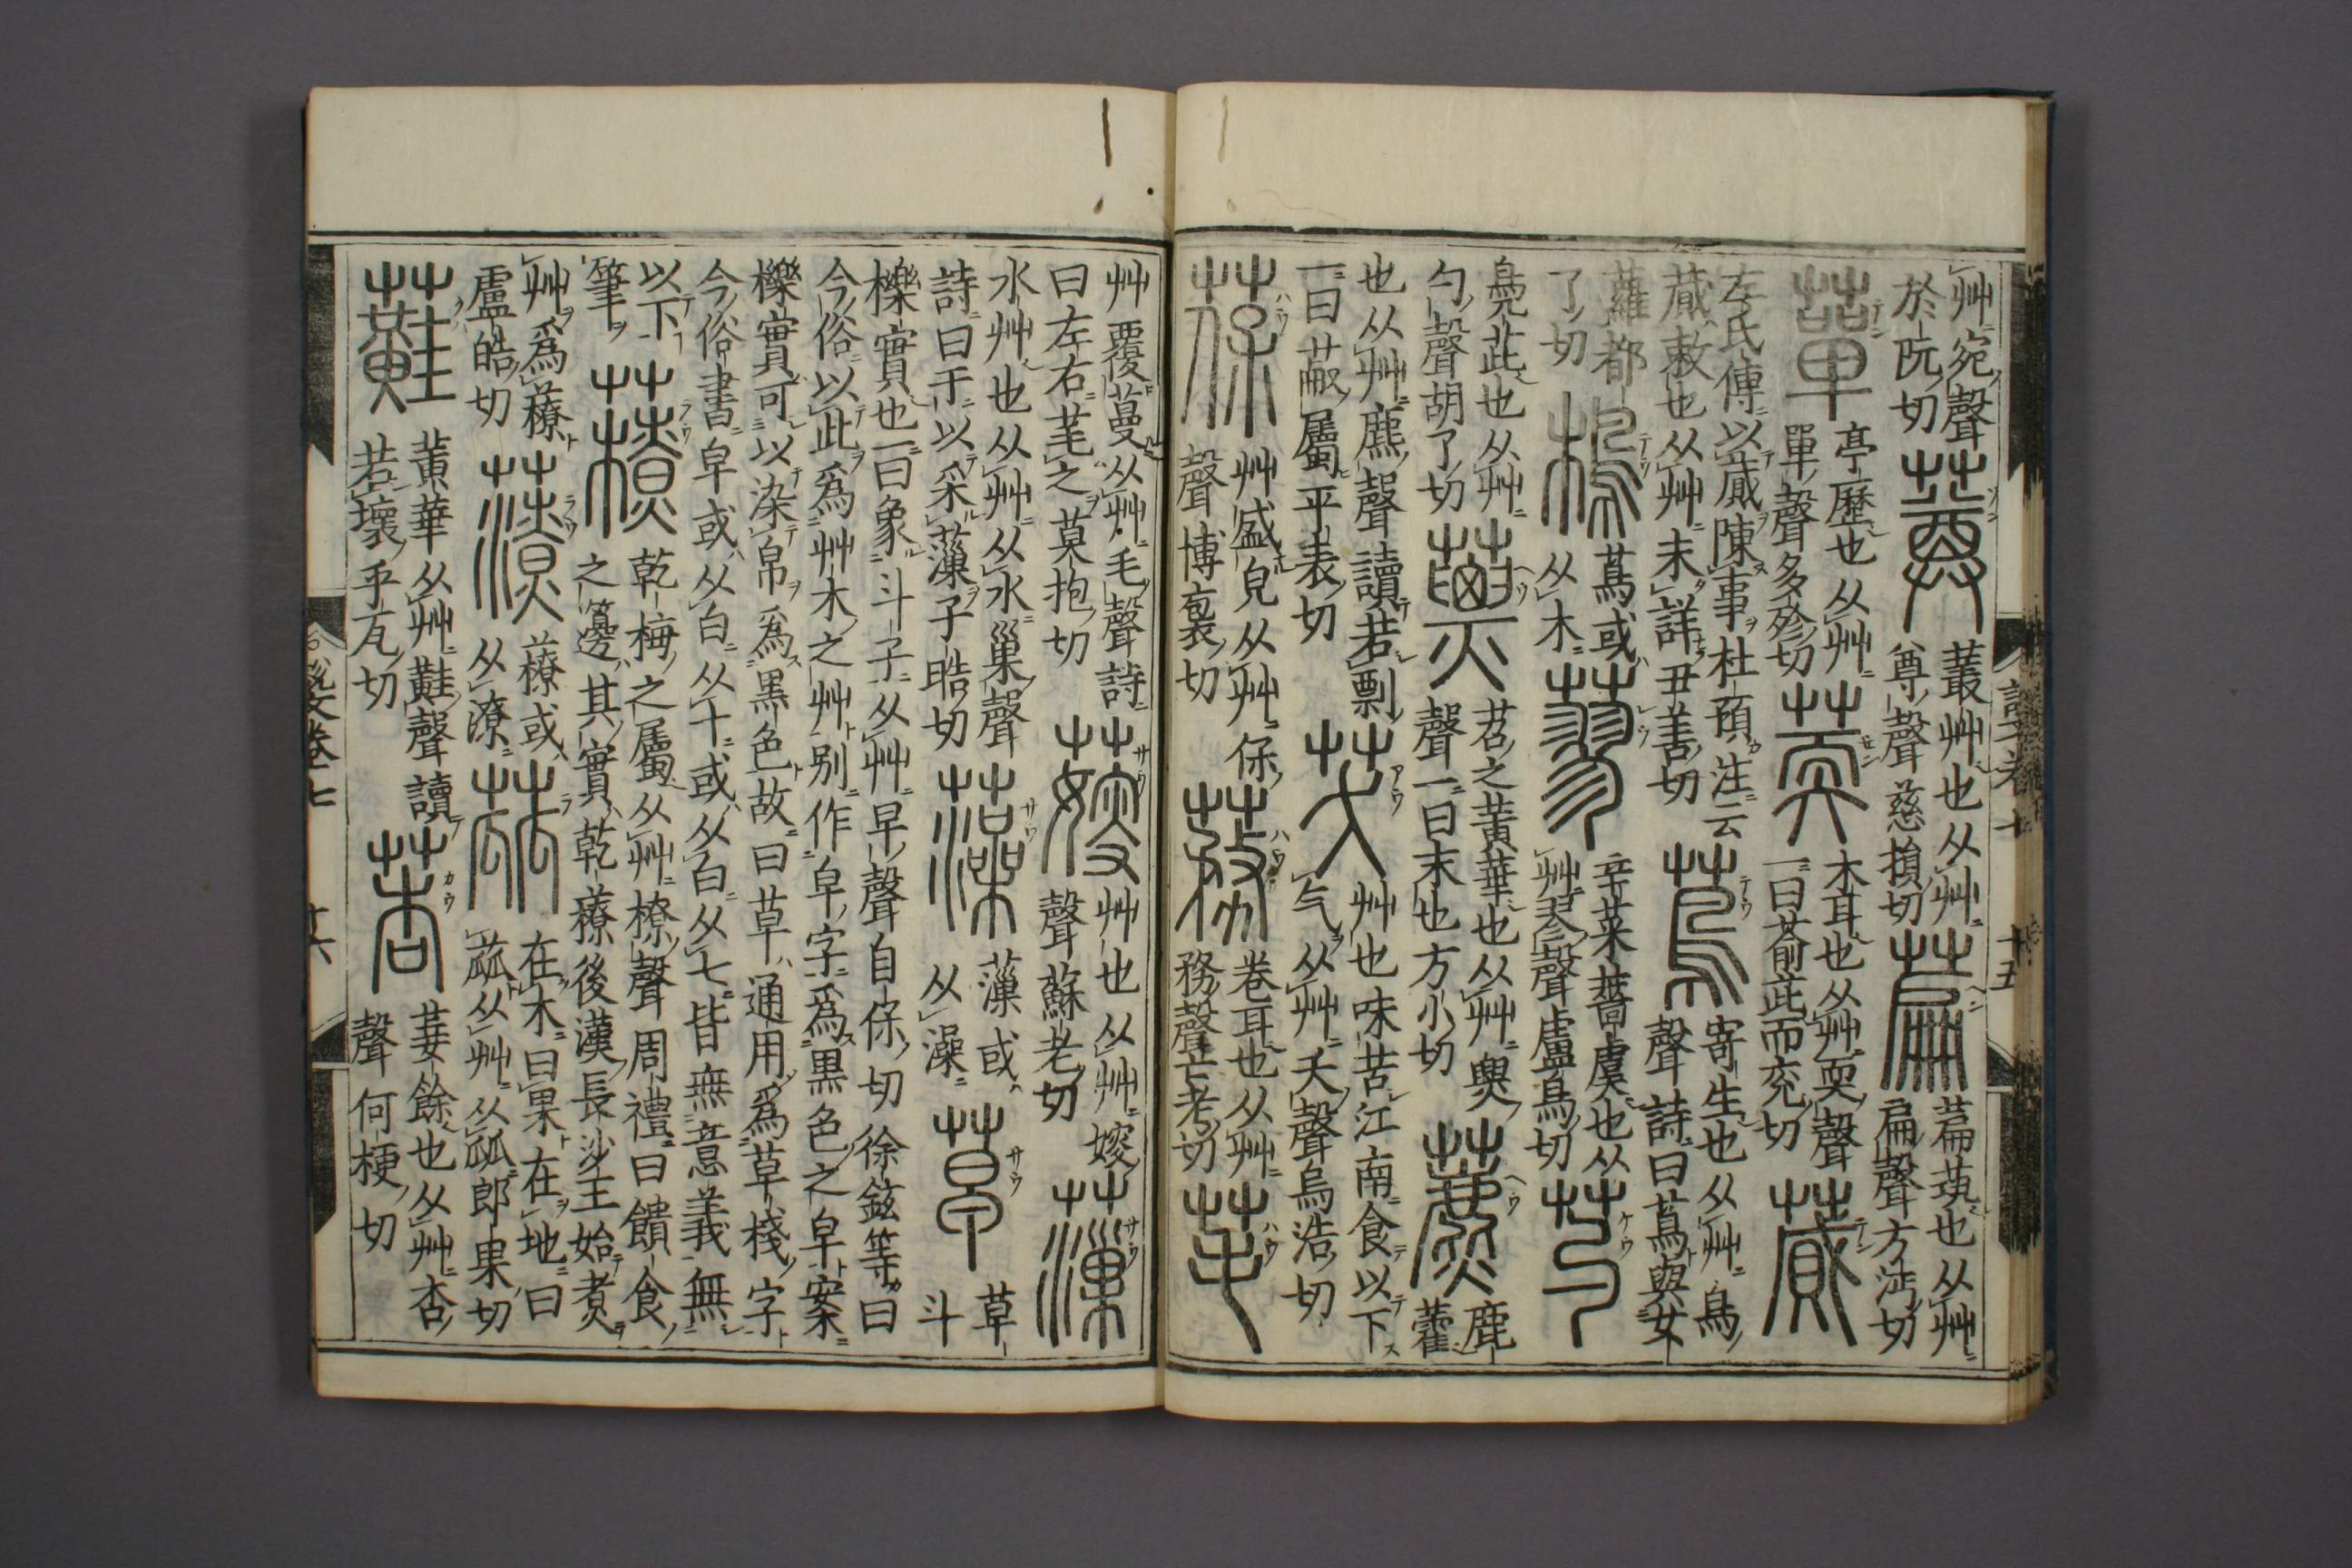 艸宛聲於阮切 蓴 叢艸也从艸尊聲慈損切 萹 萹茿也从艸扁聲方沔切
蕇 亭歷也从艸單聲多殄切 萒 木耳也从艸耎聲一曰萮茈而兖切 蕆
左氏傳以蕆陳事杜預注云蕆敕也从艸未詳丑善切 蔦 寄生也从艸鳥聲詩曰蔦與女
蘿都了切 樢 蔦或从木 蓼 辛菜薔虞也从艸翏聲盧鳥切 芍
鳧茈也从艸勺聲胡了切 蔈 苕之黃華也从艸㶾聲一曰末也方小切 藨 鹿藿
也从艸麃聲讀若剽一曰蔽屬平表切 芺 艸也味苦江南食以下气从艸夭聲烏浩切
葆 艸盛皃从艸保聲博袌切 蓩 卷耳也从艸務聲亡考切 芼
艸覆蔓从艸毛聲詩曰左右芼之莫抱切 𦺞 艸也从艸嫂聲蘇老切 薻
水艸也从艸从水巢聲詩曰于以采薻子晧切 藻 薻或从澡 草 草斗
櫟實也一曰象斗子从艸早聲自保切徐鉉等曰今俗以此爲艸木之艸別作皁字爲黑色之皁案
櫟實可以染帛爲黑色故曰草通用爲草棧字今俗書皁或从白从十或从白从七皆無意義無
以下筆 䕩 乾梅之屬从艸橑聲周禮曰饋食之籩其實乾䕩後漢長沙王始煮
艸爲䕩盧皓切 䕩或从潦 蓏 在木曰果在地曰蓏从艸从㼌郎果切
蘳 黃華从艸黊聲讀若壞乎瓦切 莕 菨餘也从艸杏聲何梗切
說文卷七 十六